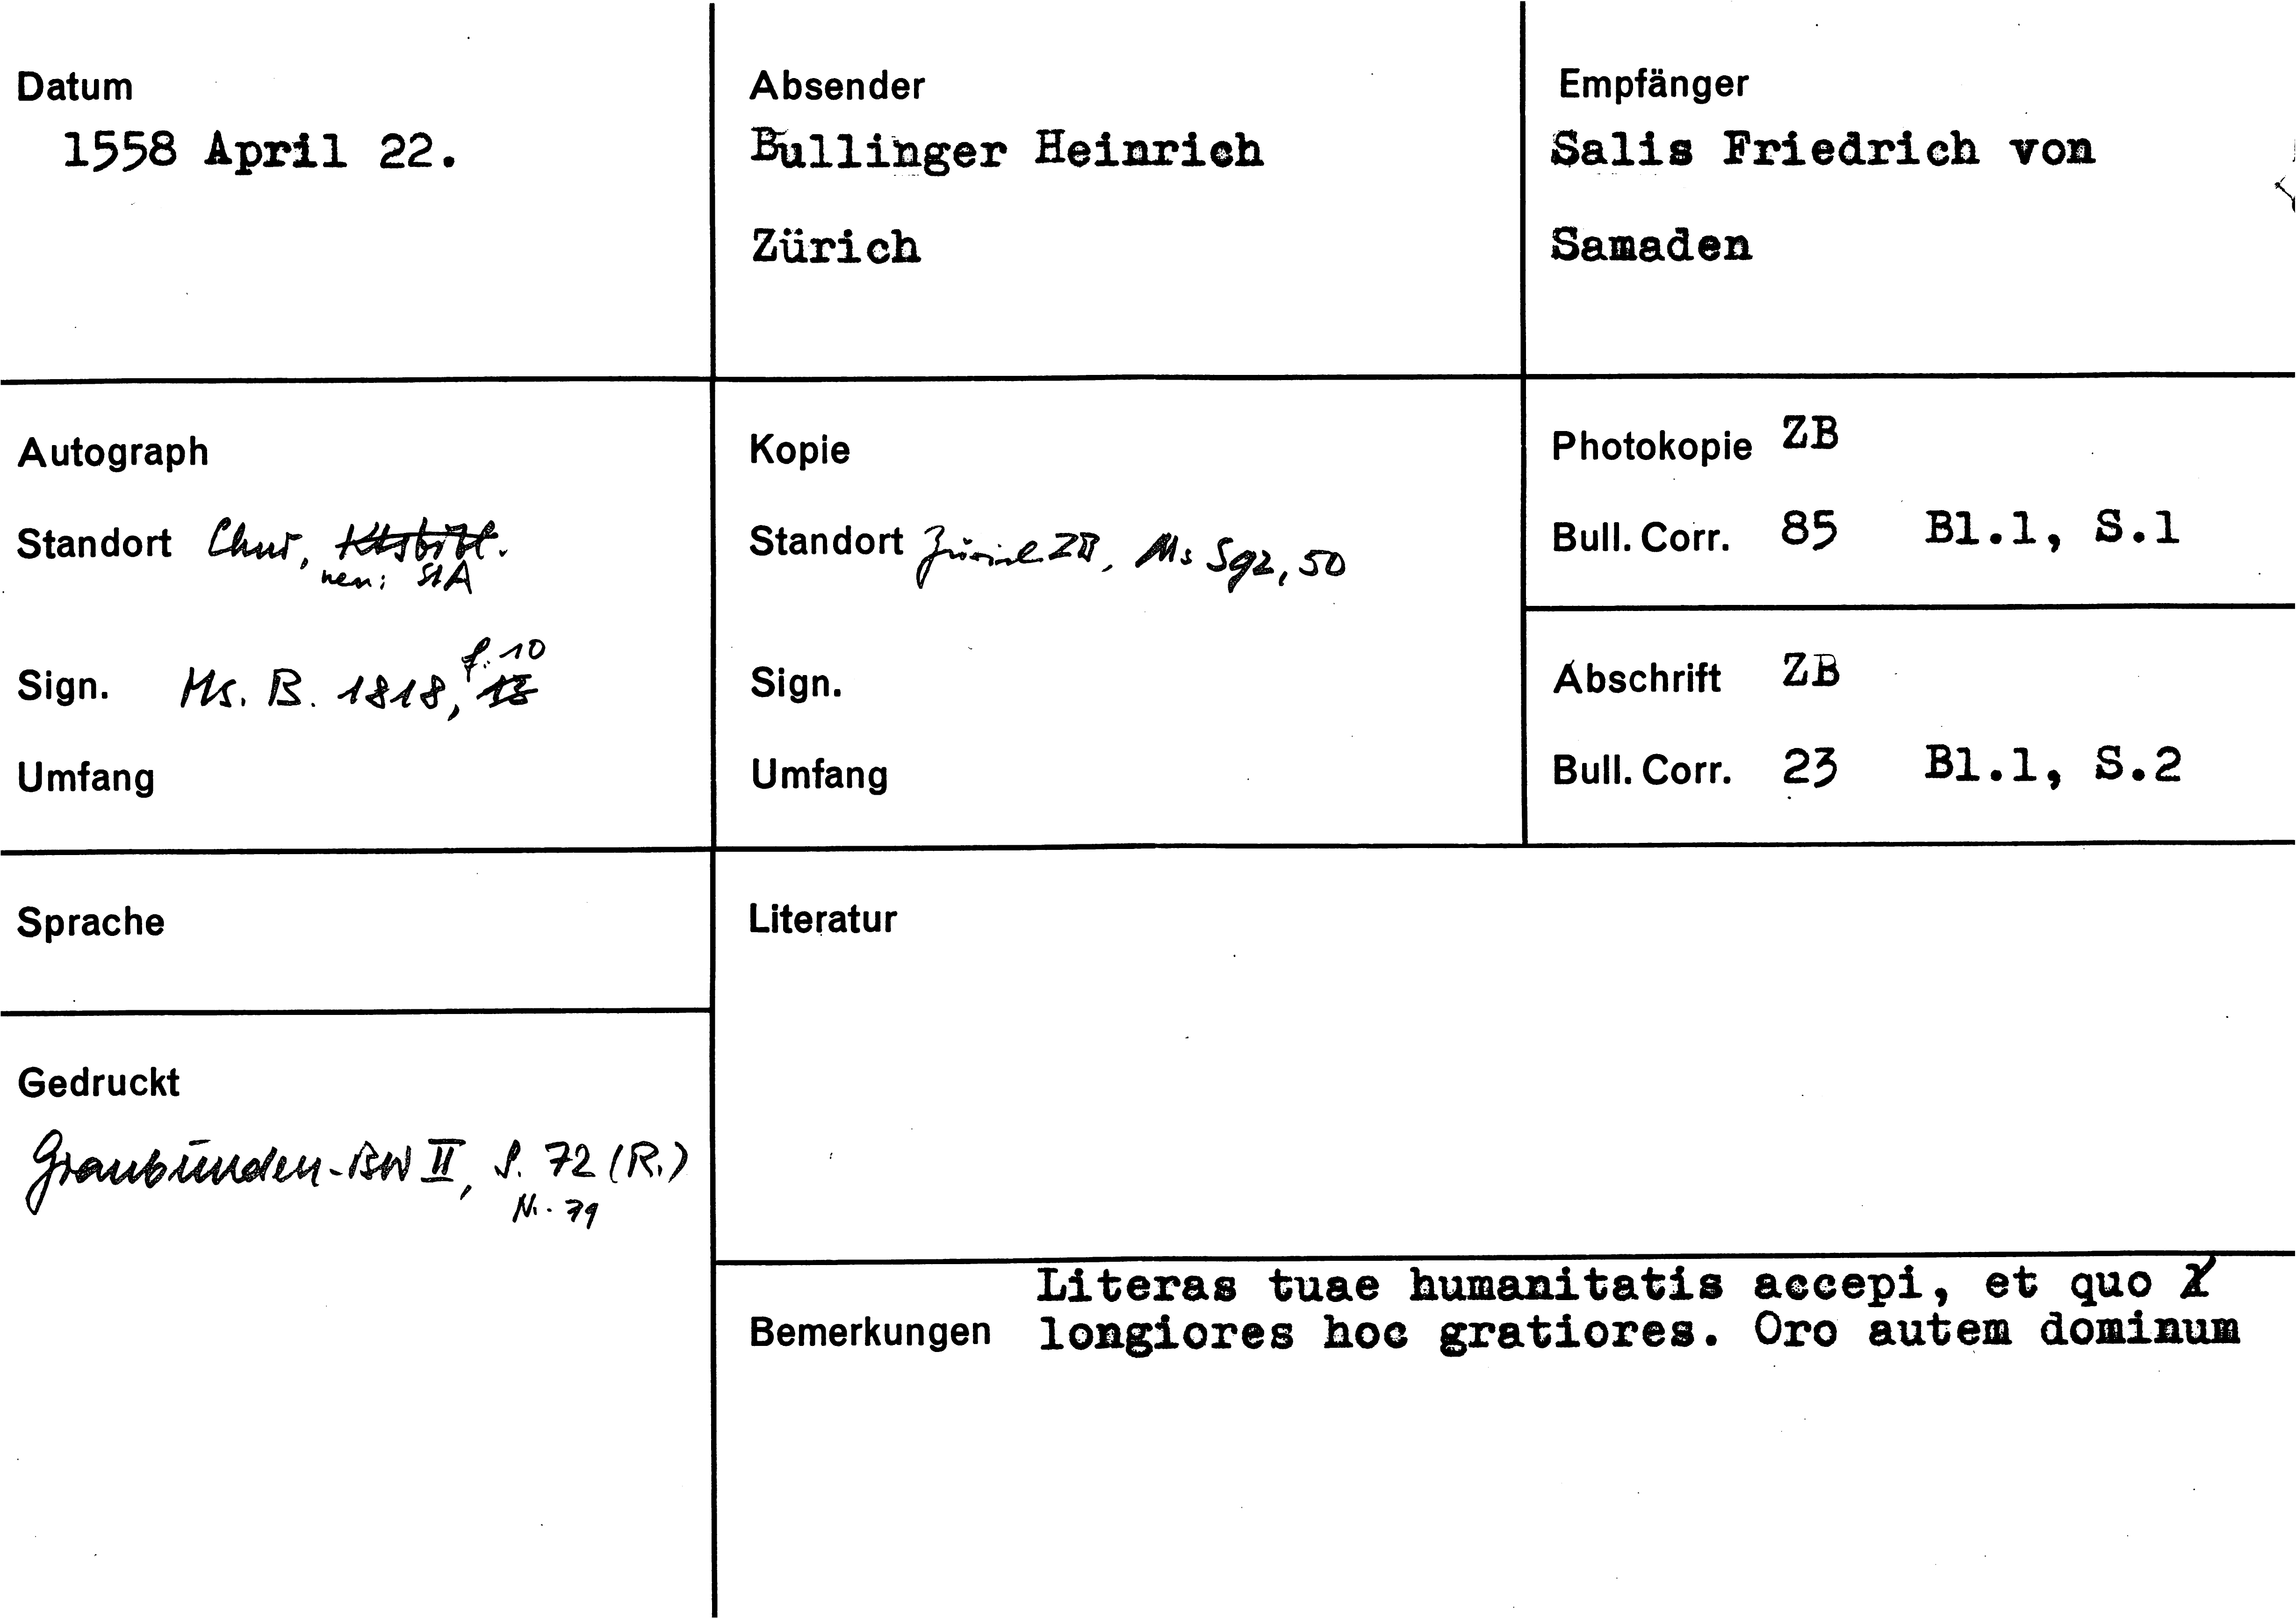 Datum
1558 April 22.
Absender
Bullinger Heinrich
Zürich
Empfänger
Salis Friedrich von
Samaden
Autograph
Standort Chur, Ktsbibl.
neu: StA
Sign. Ms. B. 1818, 18
f. 10
Umfang
Kopie
Standort Zürich ZB, Ms S92, 50
Sign.
Umfang
Photokopie ZB
Bull. Corr. 85 Bl.1, S.1
Abschrift ZB
Bull. Corr. 23 Bl.1, S.2
Sprache
Gedruckt
Graubünden-BW II, S. 72 (R.)
Nr. 79
Literatur
Bemerkungen
Literas tuae humanitatis accepi, et quo
longiores hoc gratiores. Oro autem dominum